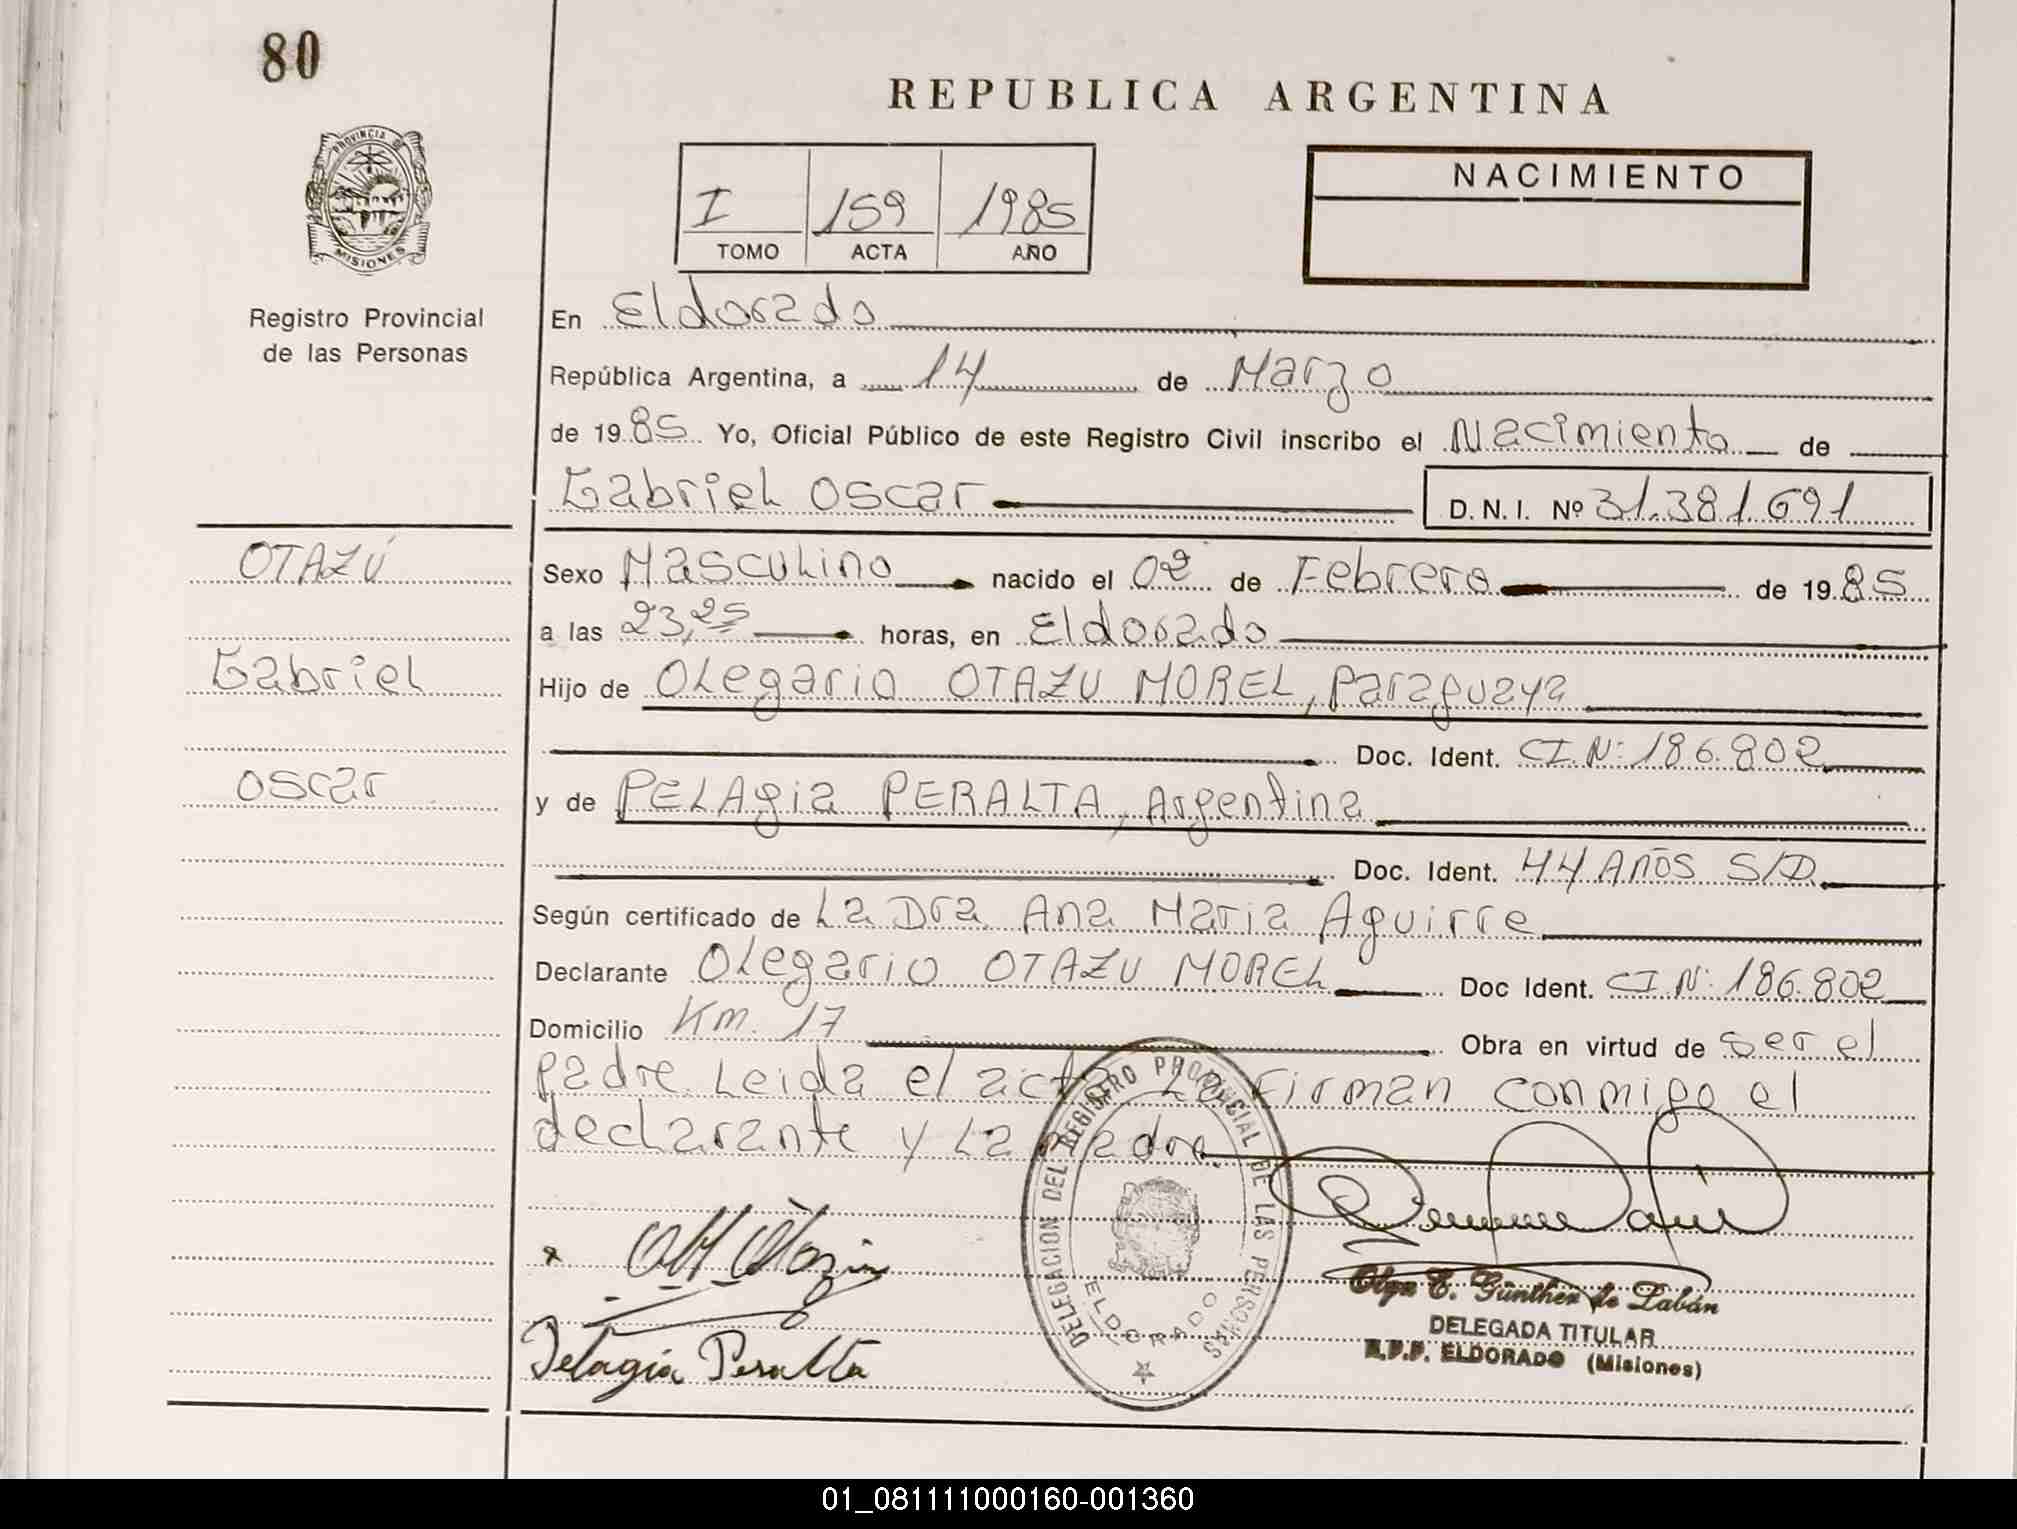 80
REPUBLICA ARGENTINA
PROVINCIA DE
MISIONES
Registro Provincial
de las Personas
I 159 1985
TOMO ACTA AÑO
NACIMIENTO
En Eldorado
República Argentina, a 14 de Marzo
de 1985 Yo, Oficial Público de este Registro Civil inscribo el Nacimiento de
Gabriel Oscar D. N. I. Nº 31.381.691
OTAZÚ
Gabriel
Oscar
Sexo Masculino nacido el 02 de Febrero de 1985
a las 23,25 horas, en Eldorado
Hijo de Olegario OTAZU MOREL, Paraguaya
Doc. Ident. C.I.N: 186.802
y de PELAgia PERALTA, Argentina
Doc. Ident. 44 AÑOS S/D
Según certificado de La Dra Ana Maria Aguirre
Declarante Olegario OTAZU MOREL Doc Ident. C.I.N: 186.802
Domicilio Km. 17 Obra en virtud de ser el
padre. Leida el acta La Firman conmigo el
declarante y La madre.
DELEGACION DEL REGISTRO PROVINCIAL DE LAS PERSONAS
ELDORADO
Pelagia Peralta
Olga E. Günther de Labán
DELEGADA TITULAR
R.P.P. ELDORADO (Misiones)
01_081111000160-001360